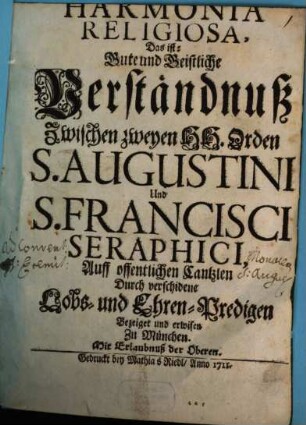 HARMONIA
RELIGIOSA,
Das ist:
Gute und Geistliche
Verständnuß
Zwischen zweyen HH. Orden
S. AUGUSTINI
Und
S. FRANCISCI
SERAPHICI,
ad Convent
Auff offentlichen Cantzlen
Durch verschidene
Lobs- und Ehren-Predigen
Bezeiget und erwisen
Zu München.
Mit Erlaubnuß der Oberen.
Gedruckt bey Mathias Riedl/ Anno 1711.